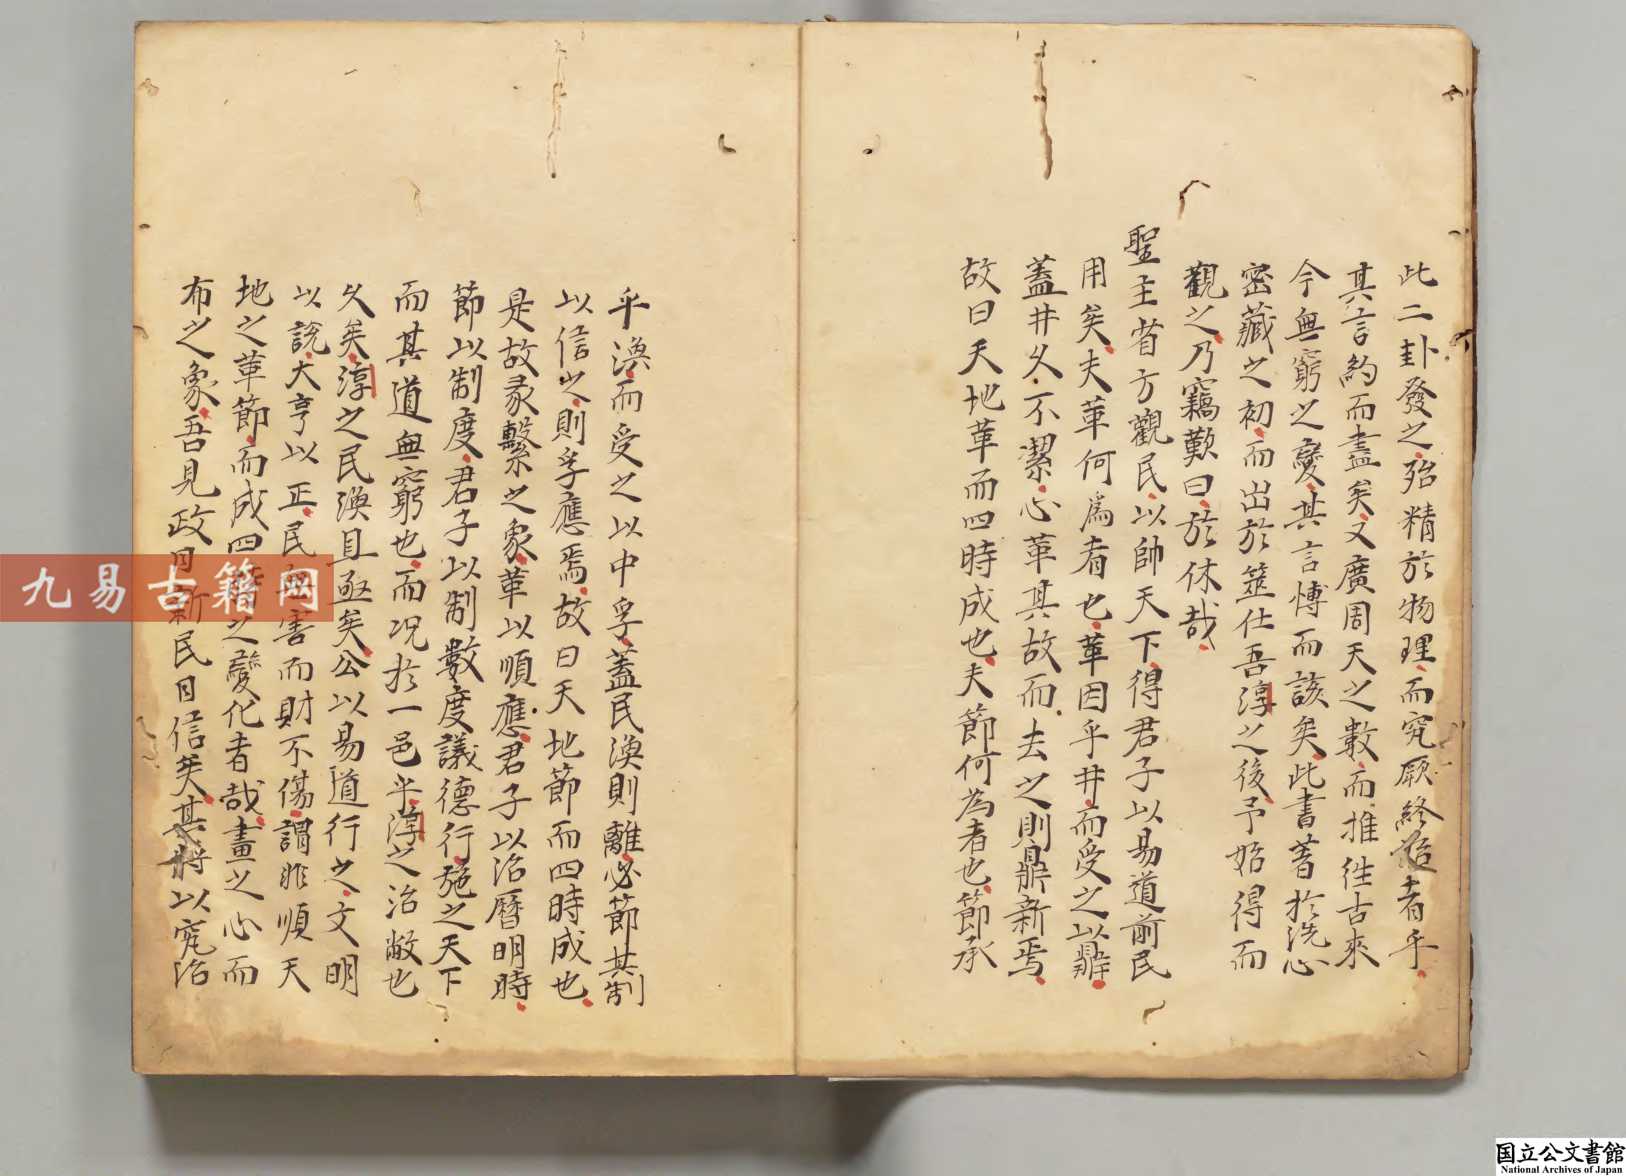 此二卦發之殆精於物理而究厥終始者乎
其言約而盡矣又廣周天之數而推徃古來
今無窮之變其言博而該矣此書著於洗心
密藏之初而出於筮仕吾淳之後予始得而
觀之乃竊歎曰於休哉
聖主省方觀民以帥天下得君子以易道前民
用矣夫革何爲者也革因乎井而受之以鼎
蓋井久不潔心革其故而去之則鼎新焉
故曰天地革而四時成也夫節何為者也節承
乎渙而受之以中孚蓋民渙則離必節其制
以信之則孚應焉故曰天地節而四時成也
是故彖繫之象革以順應君子以治曆明時
節以制度君子以制數度議德行施之天下
而其道無窮也而况於一邑乎淳之治敝也
久矣淳之民渙且亟矣公以易道行之文明
以說大亨以正民害而財不傷謂非順天
地之革節而成四之變化者哉畫之心而
布之象吾見政日新民日信矣其將以究治
九易古籍网
国立公文書館
National Archives of Japan